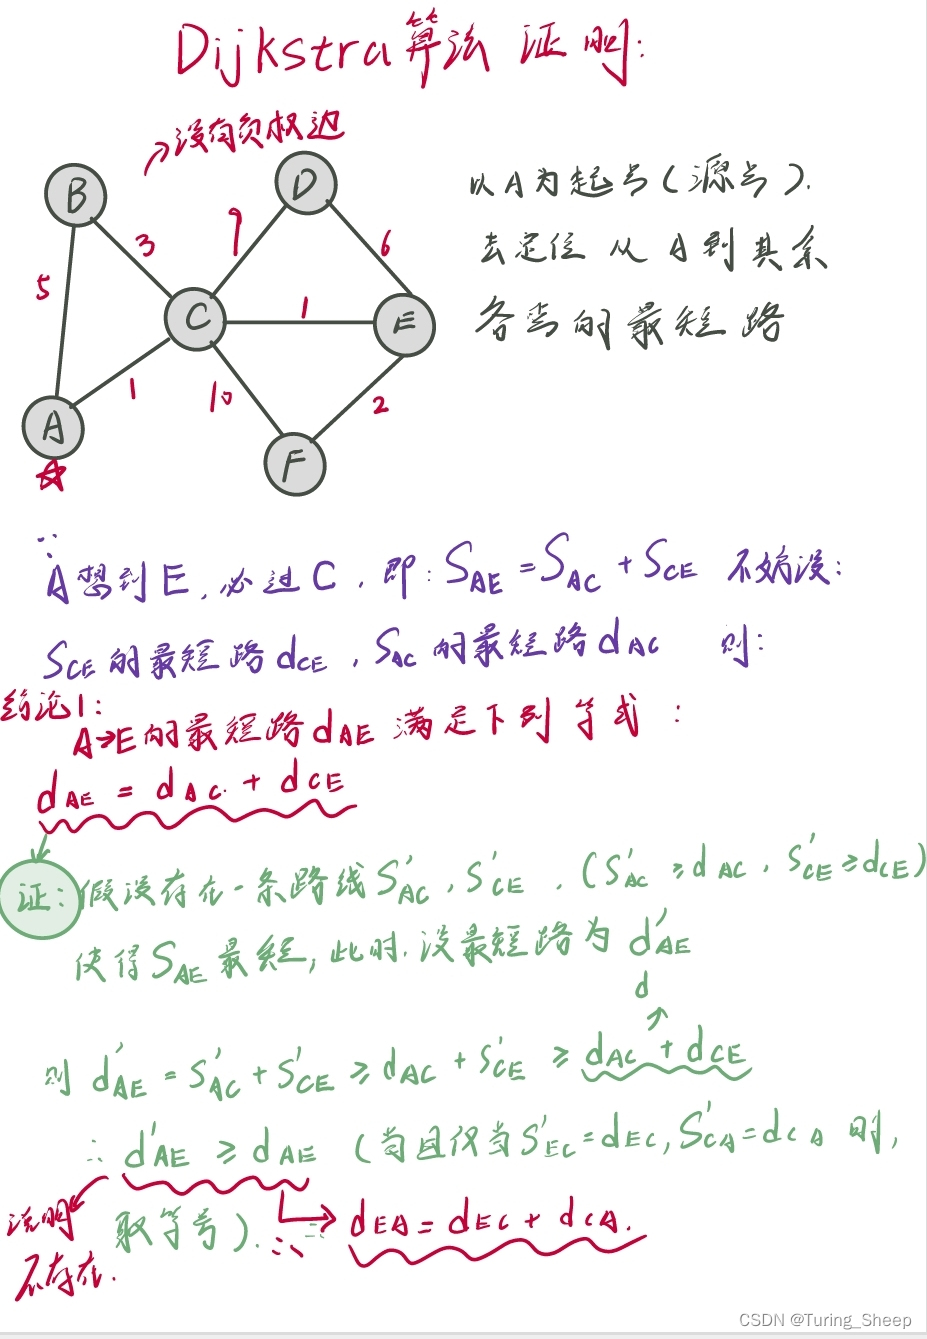 Dijkstra算法 证明:
没有负权边
B
D
以A为起点(源点).
3
9
6
去定位 从 A 到其余
5
C
1
E
各点的最短路
1
10
2
A
F
∵
A想到E, 必过C, 即: S_AE = S_AC + S_CE 不妨设:
S_CE的最短路d_CE, S_AC的最短路d_AC 则:
结论1:
A→E的最短路d_AE 满足下列等式:
d_AE = d_AC + d_CE
证: 假设存在一条路线S'_AC, S'_CE. (S'_AC ≥ d_AC, S'_CE ≥ d_CE)
使得S_AE最短, 此时, 设最短路为 d'_AE
d
则 d'_AE = S'_AC + S'_CE ≥ d_AC + S'_CE ≥ d_AC + d_CE
∴ d'_AE ≥ d_AE (当且仅当S'_EC = d_EC, S'_CA = d_CA 时,
取等号).
∴ d_EA = d_EC + d_CA.
说明
不存在.
CSDN @Turing_Sheep